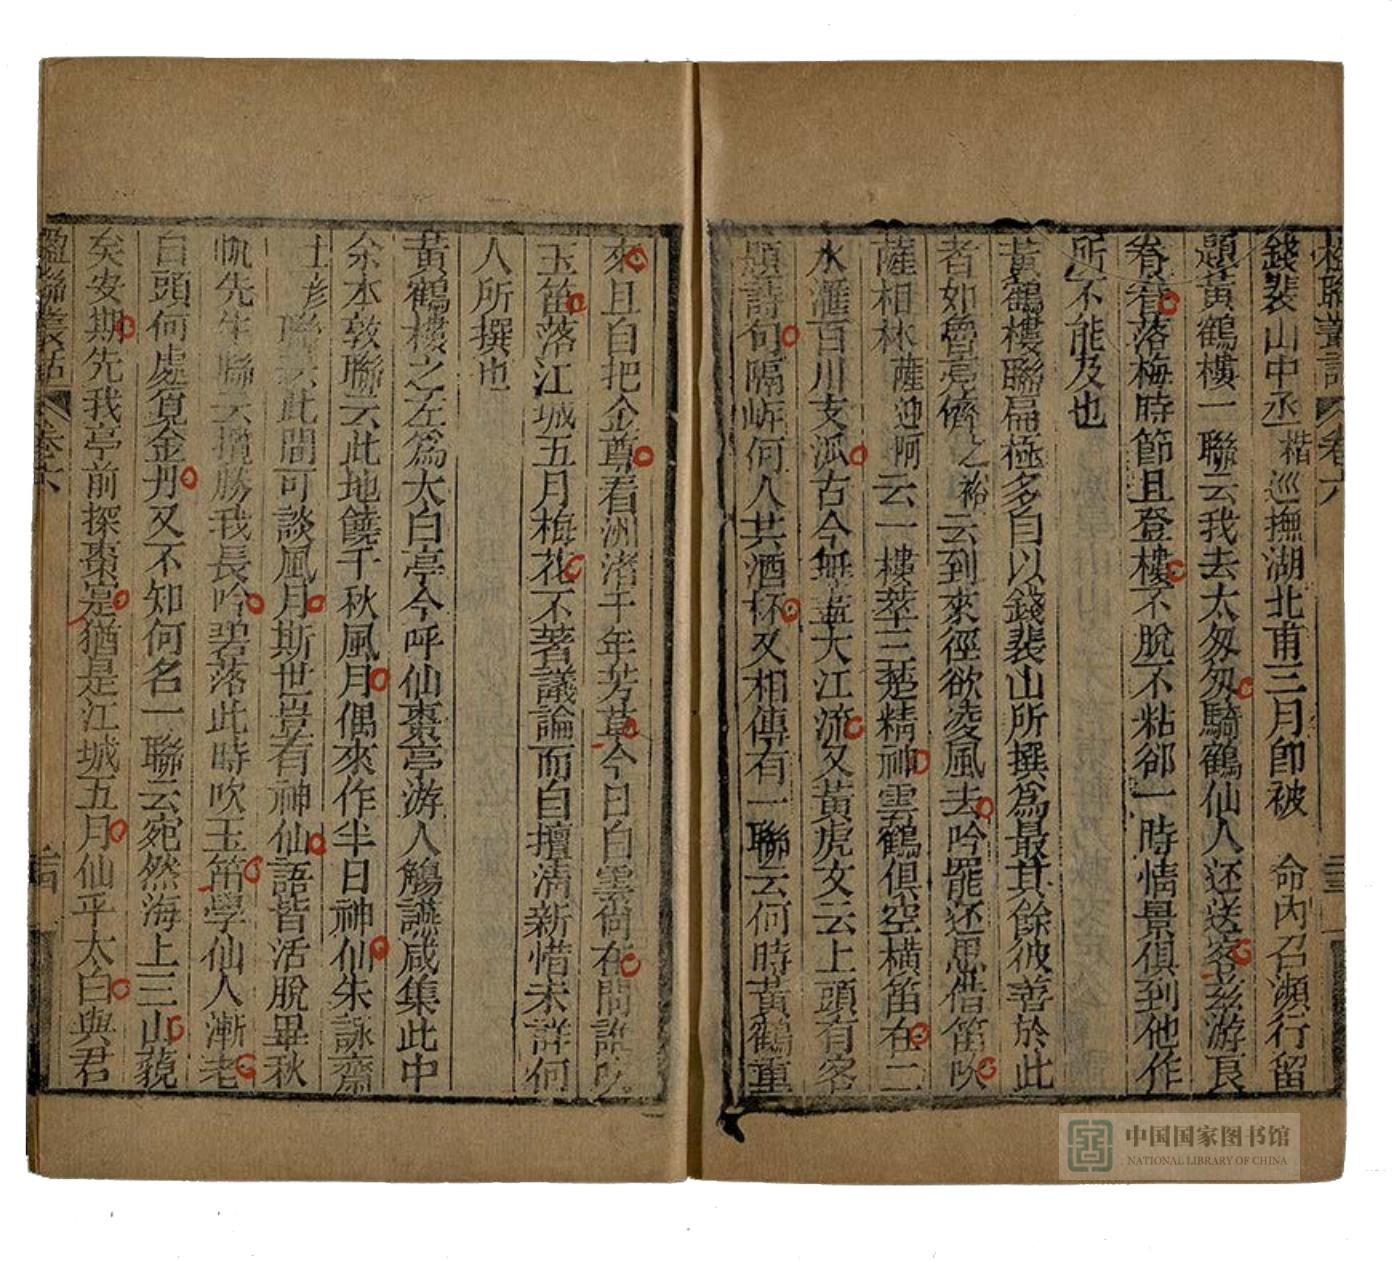 楹聯叢話 卷六
錢裴山中丞楷巡撫湖北甫三月即被 命內召瀕行留
題黃鶴樓一聯云我去太匆匆騎鶴仙人还送客茲游良
眷眷落梅時節且登樓不脫不粘卻一時情景俱到他作
所不能及也
黃鶴樓聯扁極多自以錢裴山所撰為最其餘彼善於此
者如魯亮儕之裕云到來徑欲凌風去吟罷还思借笛吹
薩相林薩迎阿云一樓萃三楚精神雲鶴俱空橫笛在二
水滙百川支派古今無盡大江流又黃虎文云上頭有客
題詩句隔岸何人共酒杯又相傳有一聯云何時黃鶴重
來且自把金尊看洲渚千年芳草今日白雲尚在問誰吹
玉笛落江城五月梅花不著議論而自壇清新惜未詳何
人所撰也
黃鶴樓之左為太白亭今呼仙棗亭游人觴讌咸集此中
余本敦聯云此地饒千秋風月偶來作半日神仙朱詠齋
士彥聯云此間可談風月斯世豈有神仙語皆活脫畢秋
帆先生聯云擅勝我長吟碧落此時吹玉笛學仙人漸老
白頭何處覓金丹又不知何名一聯云宛然海上三山藐
矣安期先我亭前探棗是猶是江城五月仙乎太白與君
楹聯叢話 卷六
中国国家图书馆
NATIONAL LIBRARY OF CHINA